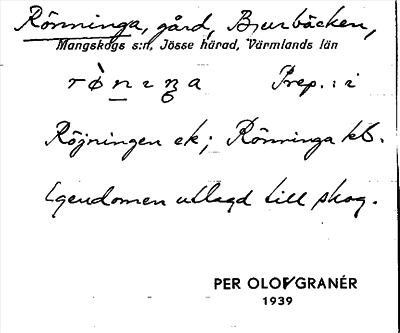 Rönninga, gård, Bjurbäcken,
Mangskogs s:n, Jösse härad, Värmlands län
Prep.: i
Röjningen ek; Rönninga kb.
Egendomen utlagd till skog.
PER OLOF GRANÉR
1939